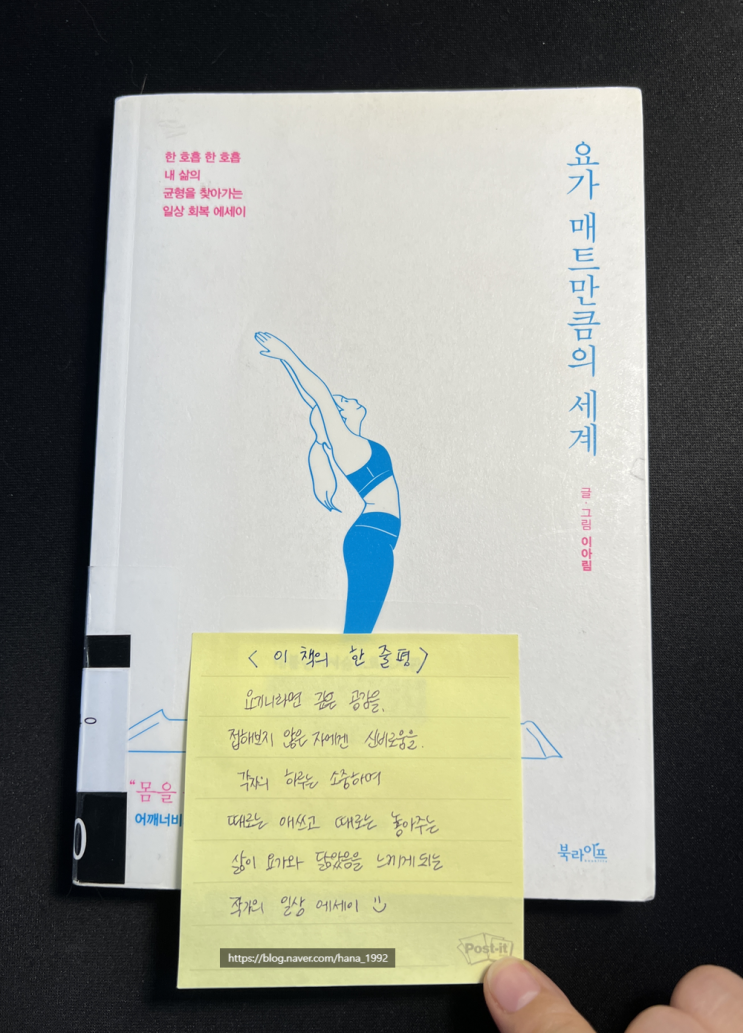 한 호흡 한 호흡
내 삶의
균형을 찾아가는
일상 회복 에세이
요가 매트만큼의 세계
글·그림 이아림
< 이 책의 한 줄평 >
요기니라면 깊은 공감을,
접해보지 않은 자에겐 신비로움을.
각자의 하루는 소중하며
때로는 애쓰고 때로는 놓아주는
삶이 요가와 닮았음을 느끼게 되는
작가의 일상 에세이
“몸을
어깨너비
0
0
북라이프
Post-it
https://blog.naver.com/hana_1992